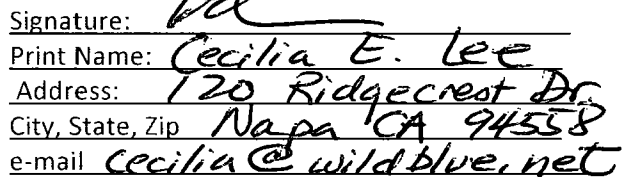 Signature:
Print Name: Cecilia E. Lee
Address: 120 Ridgecrest Dr.
City, State, Zip Napa CA 94558
e-mail cecilia@wildblue.net